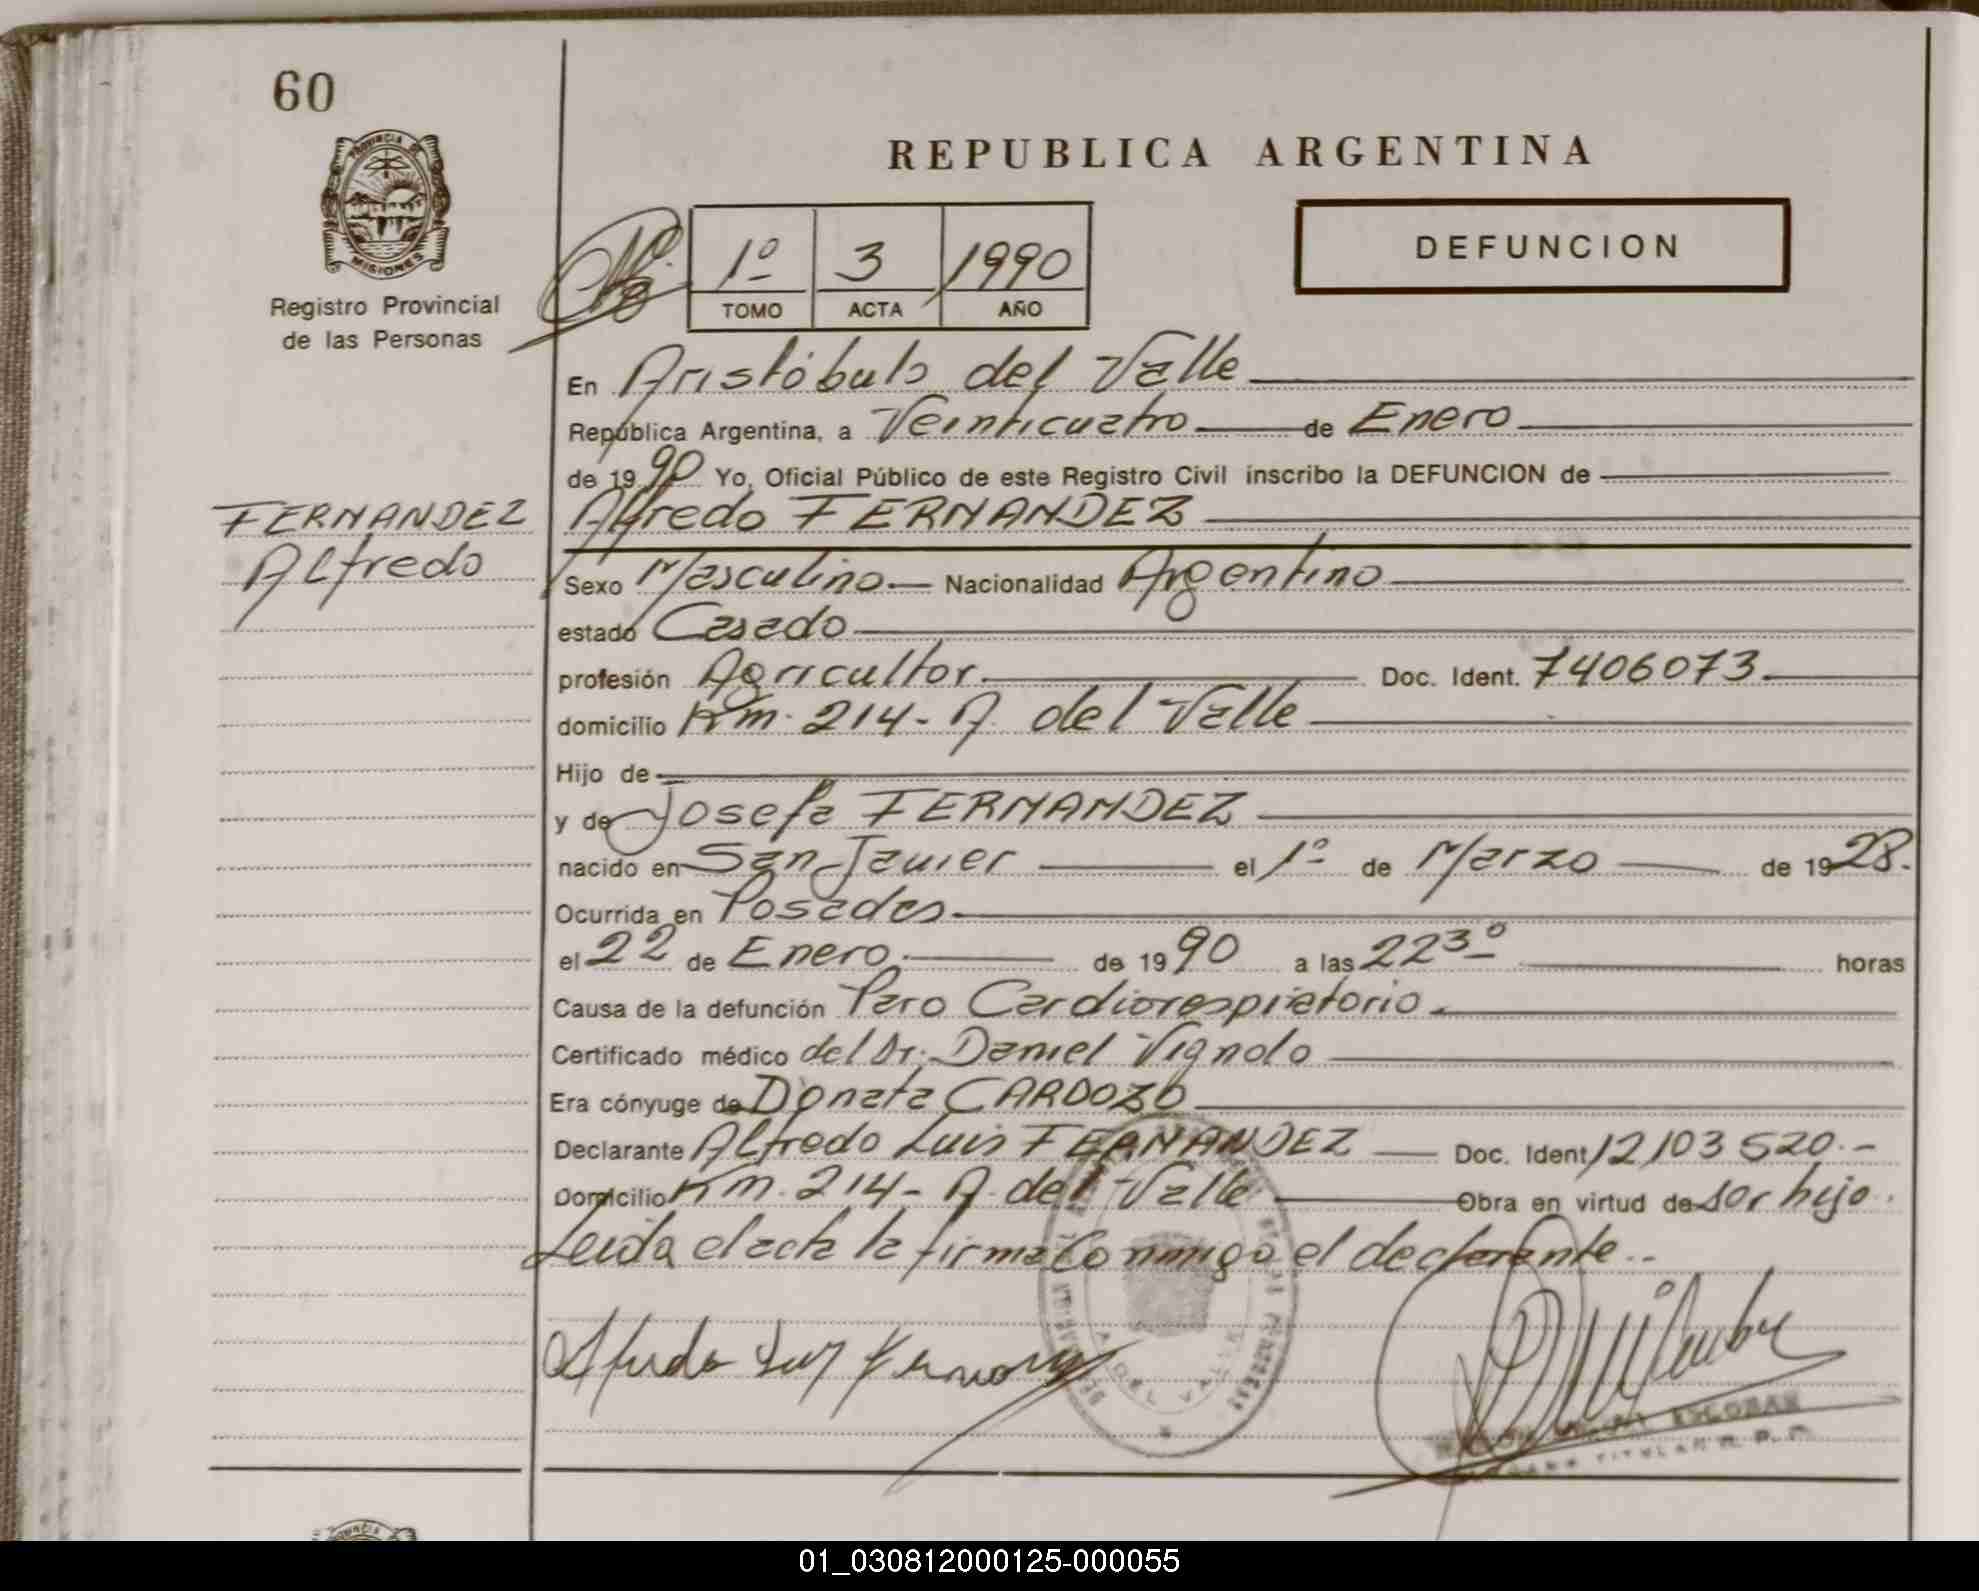 60
PROVINCIA DE
MISIONES
Registro Provincial
de las Personas
REPUBLICA ARGENTINA
1º 3 1990
TOMO ACTA AÑO
DEFUNCION
En Aristóbulo del Valle
República Argentina, a Veinticuatro de Enero
de 1990 Yo, Oficial Público de este Registro Civil inscribo la DEFUNCION de
FERNANDEZ
Alfredo
Alfredo FERNANDEZ
Sexo Masculino Nacionalidad Argentino
estado Casado
profesión Agricultor Doc. Ident. 7406073.
domicilio Km. 214 - A. del Valle
Hijo de
y de Josefa FERNANDEZ
nacido en San Javier el 1º de Marzo de 1928.
Ocurrida en Posadas
el 22 de Enero de 1990 a las 22 30 horas
Causa de la defunción Paro Cardiorespiratorio.
Certificado médico del Dr. Daniel Vignolo
Era cónyuge de Donata CARDOZO
Declarante Alfredo Luis FERNANDEZ Doc. Ident 12103520.-
Domicilio Km. 214 - A. del Valle Obra en virtud de ser hijo.
Leida el acta la firma Conmigo el declarante..
Alfredo Luis Fernandez
A. DEL VALLE
ESCOBAR
TITULAR R. P. P.
01_030812000125-000055